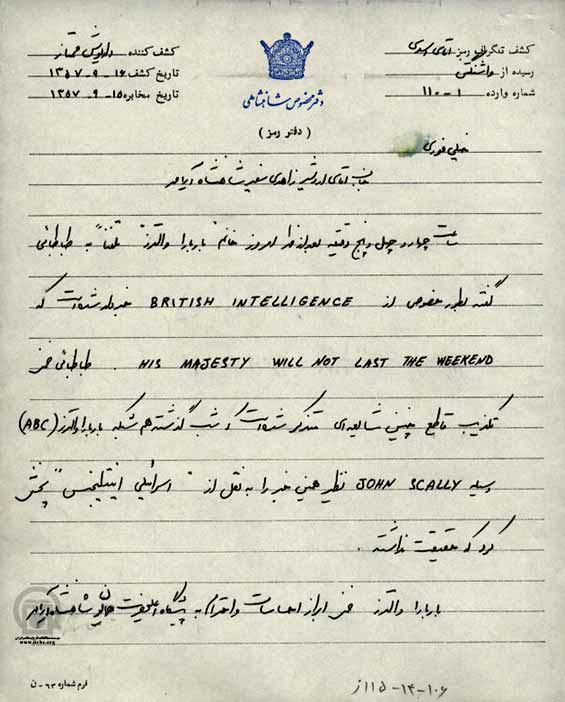 کشف تلگرافی رمز آقای اسدی
رسیده از واشنگتن
شماره وارده ۱-۱۱۰
کشف کننده داریوش ممتاز
تاریخ کشف ۱۶-۹-۱۳۵۷
تاریخ مخابره ۱۵-۹-۱۳۵۷
دفتر مخصوص شاهنشاهی
( دفتر رمز )
خیلی فوری
جناب آقای اردشیر زاهدی سفیر شاهنشاه آریامهر
ساعت چهار و چهل و پنج دقیقه بعد از ظهر امروز خانم "باربارا والترز" تلفناً به طباطبائی
گفته بطور خصوصی از BRITISH INTELLIGENCE خبردار شده است که
HIS MAJESTY WILL NOT LAST THE WEEKEND . طباطبائی ضمن
تکذیب قاطع چنین شایعه‌ای متذکر شده است که شب گذشته هم شبکه باربارا والترز (ABC)
وسیله JOHN SCALLY نظیر همین خبر را به نقل از "اسرائیلی اینتلیجنس" پخش
کرد که حقیقت نداشته .
باربارا والترز ضمن ابراز احساسات و احترام به پیشگاه اعلیحضرت همایون شاهنشاه آریامهر
www.iichs.org
فرم شماره ۶۳-ن
۱۰۶-۱۴-۱۱۵ز